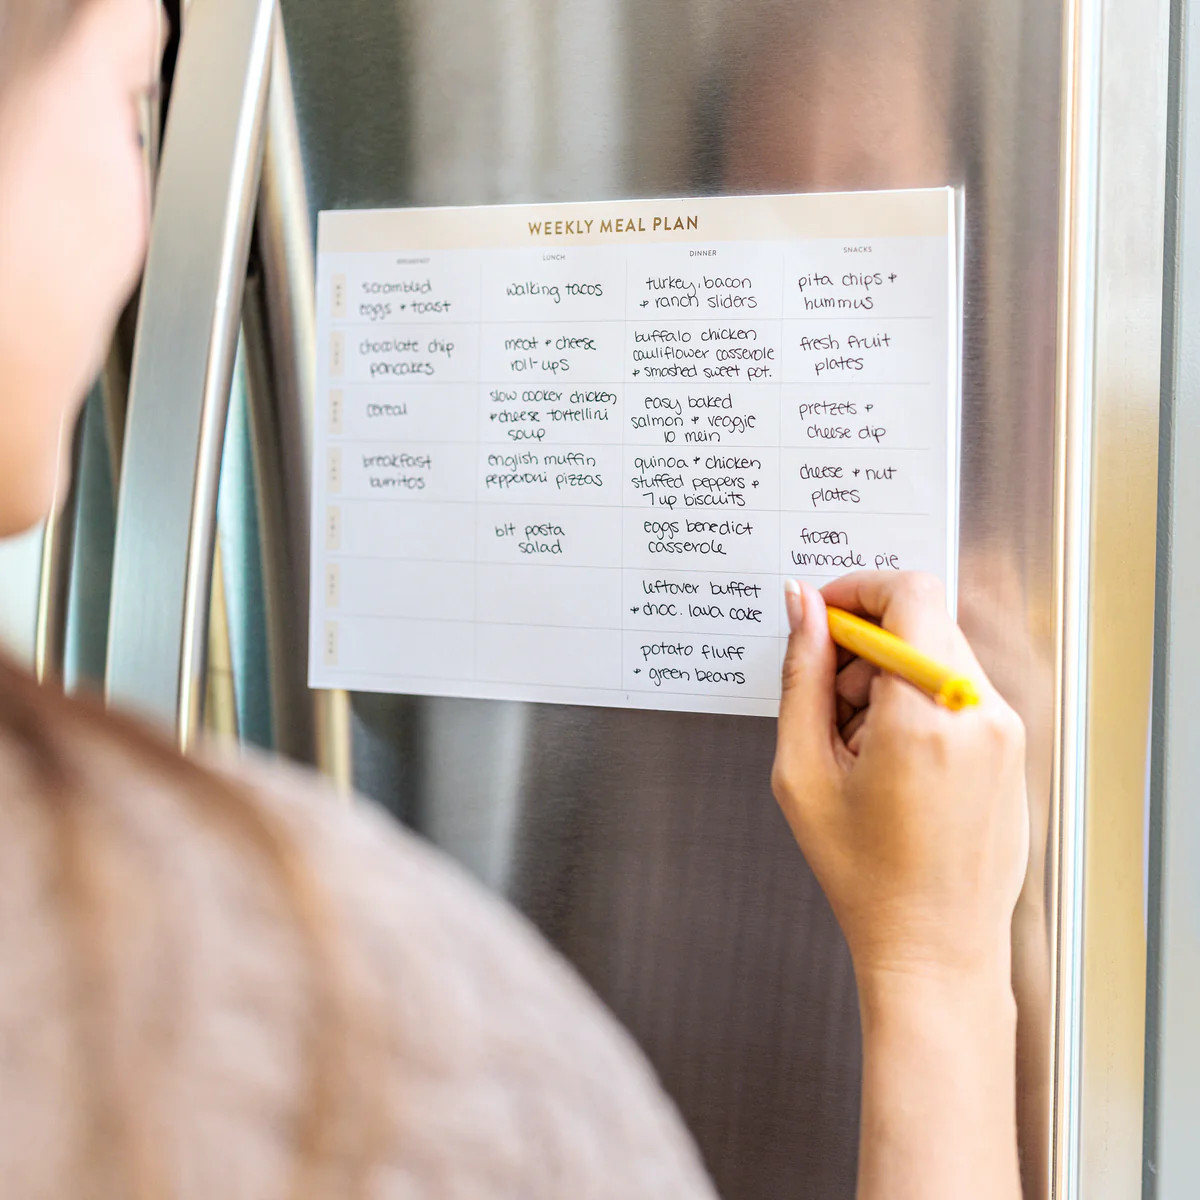 WEEKLY MEAL PLAN
BREAKFAST LUNCH DINNER SNACKS
scrambled
eggs + toast
walking tacos
turkey, bacon
+ ranch sliders
pita chips +
hummus
chocolate chip
pancakes
meat + cheese
roll-ups
buffalo chicken
cauliflower casserole
+ smashed sweet pot.
fresh fruit
plates
cereal
slow cooker chicken
+ cheese tortellini
soup
easy baked
salmon + veggie
lo mein
pretzels +
cheese dip
breakfast
burritos
english muffin
pepperoni pizzas
quinoa + chicken
stuffed peppers +
7 up biscuits
cheese + nut
plates
blt pasta
salad
eggs benedict
casserole
frozen
lemonade pie
leftover buffet
+ choc. lava cake
potato fluff
+ green beans